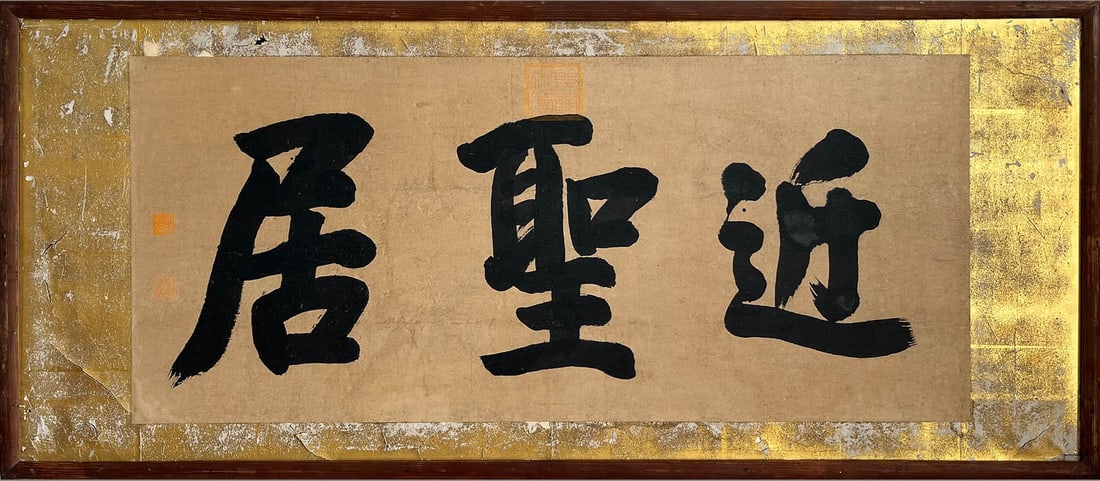 近聖居